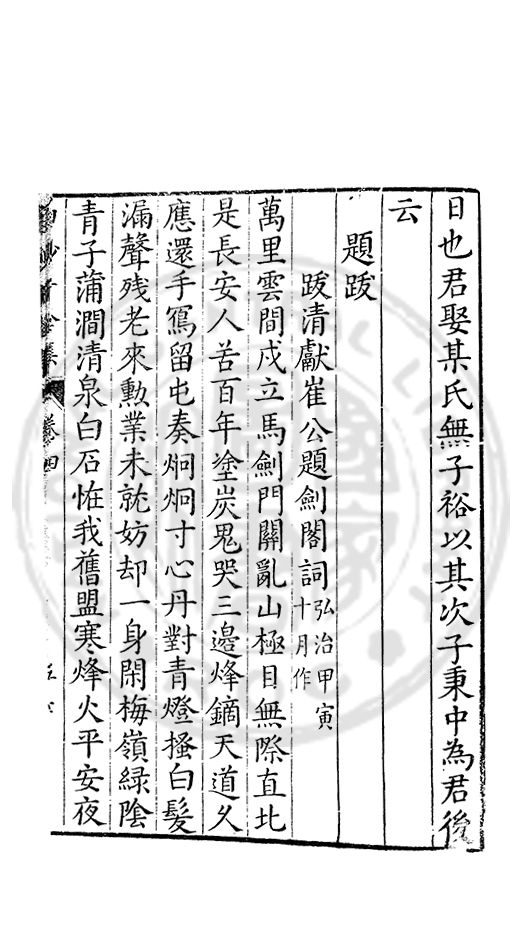 日也君娶某氏無子裕以其次子秉中為君後
云
題跋
跋清獻崔公題劍閣詞弘治甲寅十月作
萬里雲間戍立馬劍門關亂山極目無際直北
是長安人苦百年塗炭鬼哭三邊烽鏑天道久
應還手寫留屯奏炯炯寸心丹對青燈搔白髮
漏聲残老來勲業未就妨却一身閑梅嶺緑陰
青子蒲澗清泉白石恠我舊盟寒烽火平安夜
卷四